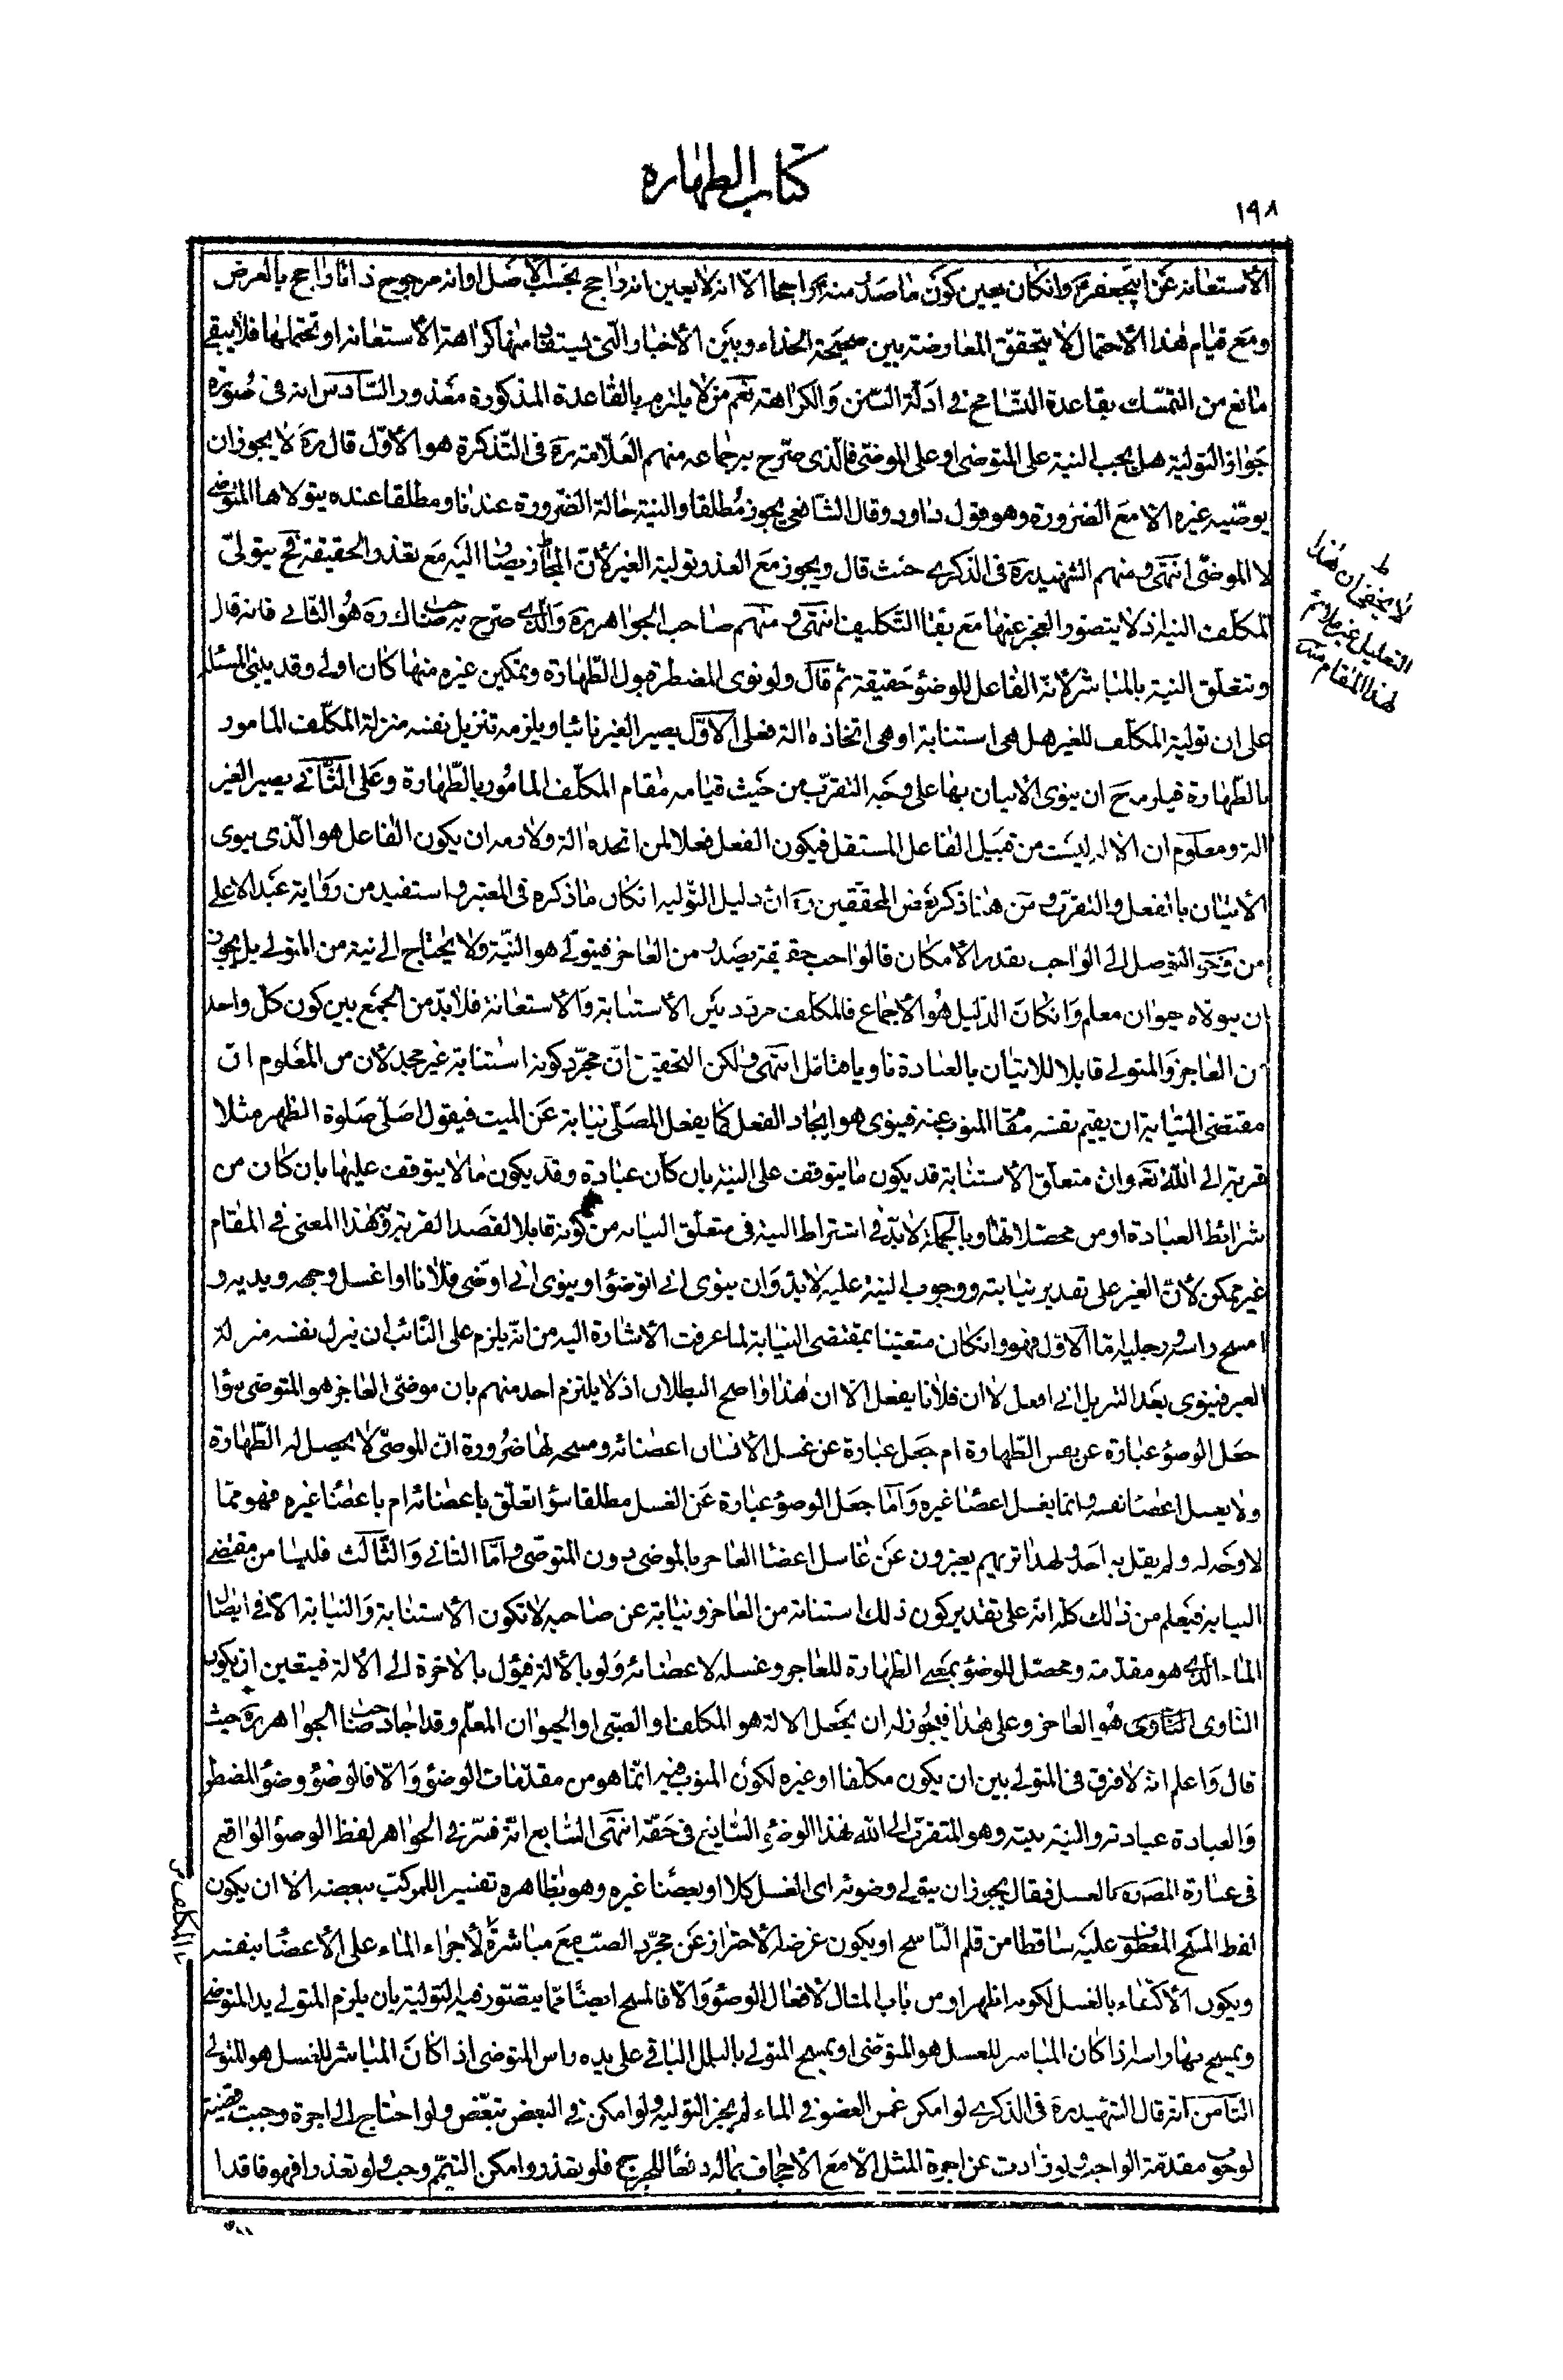 كتاب الطهارة
١٩٨
الاستعانة عن ابيجعفر ع وان كان يعين كون ما صدر منه راجحا الّا انه لا يعين انه راجح بحسب الاصل او انه مرجوح ذاتا راجح بالعرض
ومع قيام هذا الاحتمال لا يتحقق المعارضة بين صحيحة الحذاء وبين الاخبار الّتي يستفاد منها كراهة الاستعانة او تحتملها فلا يبقى
مانع من التمسّك بقاعدة التّسامح في ادلّة السّنن والكراهة نعم من لا يلتزم بالقاعدة المذكورة معذور السّادس انه في صورة
جواز التولية هل يجب النية على المتوضى او على الموضئ فالّذى صرّح به جماعة منهم العلّامة ره في التّذكرة هو الاوّل قال ره لا يجوز ان
يوضّيه غيره الا مع الضرورة وهو قول داود وقال الشّافعي يجوز مطلقا والنية حالة الضّرورة عندنا ومطلقا عنده يتولاها المتوضى
لا الموضّى انتهى ومنهم الشهيد ره في الذكرى حيث قال ويجوز مع العذر تولية الغير لأنّ المجاز يصار اليه مع تعذر الحقيقة فح يتولىّ
المكلّف النية اذ لا يتصور العجز عنها مع بقاء التّكليف انتهى و منهم صاحب الجواهر ره والّذى صرّح به صاحب ك ره هو الثّاني فانه قال
وتتعلّق النية بالمباشر لأنّه الفاعل للوضوء حقيقة ثم قال ولو نوى المضطر قبول الطّهارة وتمكين غيره منها كان اولى وقد يبنى المسئلة
على ان تولية المكلّف للغير هل هي استنابة او هي اتخاذه الة فعلى الاوّل يصير الغير نائبا ويلزمه تنزيل نفسه منزلة المكلّف المامور
بالطّهارة فيلزمه ح ان ينوى الاتيان بها على وجه التقرّب من حيث قيامه مقام المكلّف المامور بالطّهارة وعلى الثّاني يصير الغير
الة ومعلوم ان الالة ليست من قبيل الفاعل المستقل فيكون الفعل فعلا لمن اتخذه الة ولازمه ان يكون الفاعل هو الّذى ينوى
الاتيان بالفعل والتقرّب ومن هنا ذكر بعض المحققين ره انّ دليل التّولية ان كان ما ذكره في المعتبر واستفيد من رواية عبد الاعلى
من وجوب التوصل الى الواجب بقدر الامكان فالواجب حقيقة يصدر من العاجز فيتولّى هو النيّة ولا يحتاج الى نية من المتولى بل يجوز
ان يتولاه حيوان معلم وان كان الدّليل هو الاجماع فالمكلّف مردّد بين الاستنابة والاستعانة فلا بدّ من الجمع بين كون كلّ واحد
من العاجز والمتولى قابلا للاتيان بالعبادة ناويا هذا تأمّل انتهى ولكن التحقيق انّ مجرّد كونه استنابة غير مجد لأن من المعلوم انّ
مقتضى النّيابة ان يقيم نفسه مقام المنوب عنه فينوى هو ايجاد الفعل كما يفعل المصلّى نيابة عن الميت فيقول اصلّى صلوة الظهر مثلا
قربة الى اللّه تعه وان متعلّق الاستنابة قد يكون ما يتوقف على النية بان كان عبادة وقد يكون ما لا يتوقف عليها بان كان من
شرائط العبادة او من محصّلاتها وبالجملة لا بدّ في اشتراط النية في متعلّق النيابة من كونه قابلا لقصد القربة وبهذا المعنى في المقام
غير ممكن لأنّ الغير على تقدير نيابته ووجوب النية عليه لا بدّ وان ينوى اني اتوضؤ او ينوى اني اوضّى فلانا او اغسل وجهه ويديه و
امسح راسه ورجليه امّا الاوّل فهو وان كان متعيّنا بمقتضى النيابة لما عرفت الاشارة اليه من انّه يلزم على النّائب ان ينزل نفسه منزلة
الغير فينوى بعد التنزيل اني افعل لا ان فلانا يفعل الّا ان هذا واضح البطلان اذ لا يلتزم احد منهم بان موضّى العاجز هو المتوضى سواء
جعل الوضوء عبارة عن نفس الطّهارة ام جعل عبارة عن غسل الانسان اعضائه ومسحه لها ضرورة انّ الموضّى لا يحصل له الطّهارة
ولا يغسل اعضاء نفسه وانما يغسل اعضاء غيره وامّا جعل الوضوء عبارة عن الغسل مطلقا سواء تعلّق باعضائه ام باعضاء غيره فهو ممّا
لا وجه له ولم يقل به احد ولهذا تريهم يعبرون عن غاسل اعضاء العاجز بالموضى دون المتوضّى وامّا الثاني والثّالث فليسا من مقتضى
النيابة فيعلم من ذلك كلّه انّه على تقدير كون ذلك استنابة من العاجز ونيابة عن صاحبه لا تكون الاستنابة والنيابة الا في ايصال
الماء الّذى هو مقدّمة ومحصّل للوضوء بمعنى الطّهارة للعاجز وغسله لاعضائه ولو بالالة فيؤل بالاخرة الى الالة فيتعين ان يكون
النّاوى النّاوى هو العاجز وعلى هذا فيجوز له ان يجعل الالة هو المكلف او الصّبى او الحيوان المعلّم وقد اجاد صاحب الجواهر ره حيث
قال واعلم انه لا فرق في المتولى بين ان يكون مكلّفا او غيره لكون المنوب فيه انّما هو من مقدّمات الوضوء والّا فالوضوء وضوء المضطر
والعبادة عبادته والنية نيته وهو المتقرّب الى اللّه بهذا الوضوء السّايغ في حقّه انتهى السّابع انّه فسّر في الجواهر لفظ الوضوء الواقع
في عبارة المصه ره بالغسل فقال يجوز ان يتولى وضوئه اى الغسل كلا او بعضا غيره وهو بظاهره تفسير للمركّب ببعضه الا ان يكون
لفظ المسح المعطوف عليه ساقطا من قلم النّاسخ او يكون غرضه الاحتراز عن مجرّد الصبّ مع مباشرة لأجراء الماء على الاعضاء بنفسه
ويكون الاكتفاء بالغسل لكونه اظهر او من باب المثال لأفعال الوضوء والّا فالمسح ايضا ممّا يتصّور فيه التولية بان يلزم المتولى يد المتوضى
ويمسح بها راسه اذا كان المباشر للغسل هو المتوضى او يمسح المتولى بالبلل الباقى على يده راس المتوضى اذا كان المباشر للغسل هو المتولى
الثّامن انّه قال الشهيد ره في الذكرى لو امكن غمس العضو في الماء لم يجز التولية ولو امكن في البعض تبعّض ولو احتاج الى اجرة وجبت قضية
لوجوب مقدّمة الواجب ولو زادت عن اجرة المثل الّا مع الاجحاف بماله دفعا للحرج فلو تعذر وامكن التيمّم وجب ولو تعذرا فهو فاقدا
ط
لا يخفى ان هذا
التعليل غير ملائم
لهذا المقام منه
المكلف